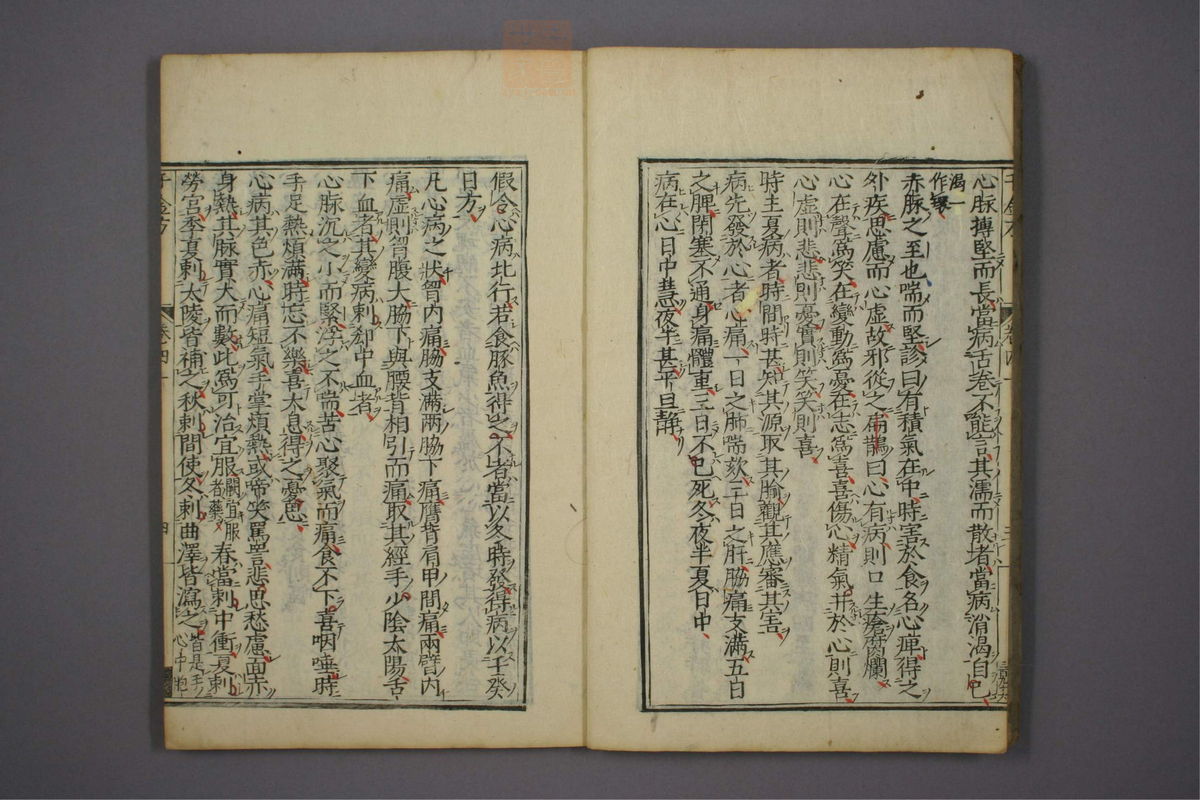 心脉搏堅而長當病舌卷不能言其濡而散者當病消渴自已
渴一
作環
赤脉之至也喘而堅診曰有積氣在中時害於食名心痺得之
外疾思慮而心虛故邪從之扁鵲曰心有病則口生瘡腐爛
心在聲爲笑在變動爲憂在志爲喜喜傷心精氣并於心則喜
心虛則悲悲則憂實則笑笑則喜
時主夏病者時間時甚知其源取其腧觀其應審其害
病先發於心者心痛一日之肺喘欬三日之肝脇痛支滿五日
之脾閉塞不通身痛體重三日不已死冬夜半夏日中
病在心日中慧夜半甚平旦靜
假令心病北行若食豚魚得之不者當以冬時發得病以壬癸
日方
凡心病之狀胷內痛脇支滿兩脇下痛膺背肩甲間痛兩臂內
痛虛則胷腹大脇下與腰背相引而痛取其經手少陰太陽舌
下血者其變病刺郄中血者
心脉沉之小而堅浮之不喘苦心聚氣而痛食不下喜咽唾時
手足熱煩滿時忘不樂喜太息得之憂思
心病其色赤心痛短氣手掌煩熱或啼笑罵詈悲思愁慮面赤
身熱其脉實大而數此爲可治宜服
闕宜服
者藥
春當刺中衝夏刺
勞宮季夏刺太陵皆補之秋刺間使冬刺曲澤皆瀉之
皆是手
心中胞
卷四
四